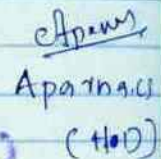 Aparna.G
(H.O.D)